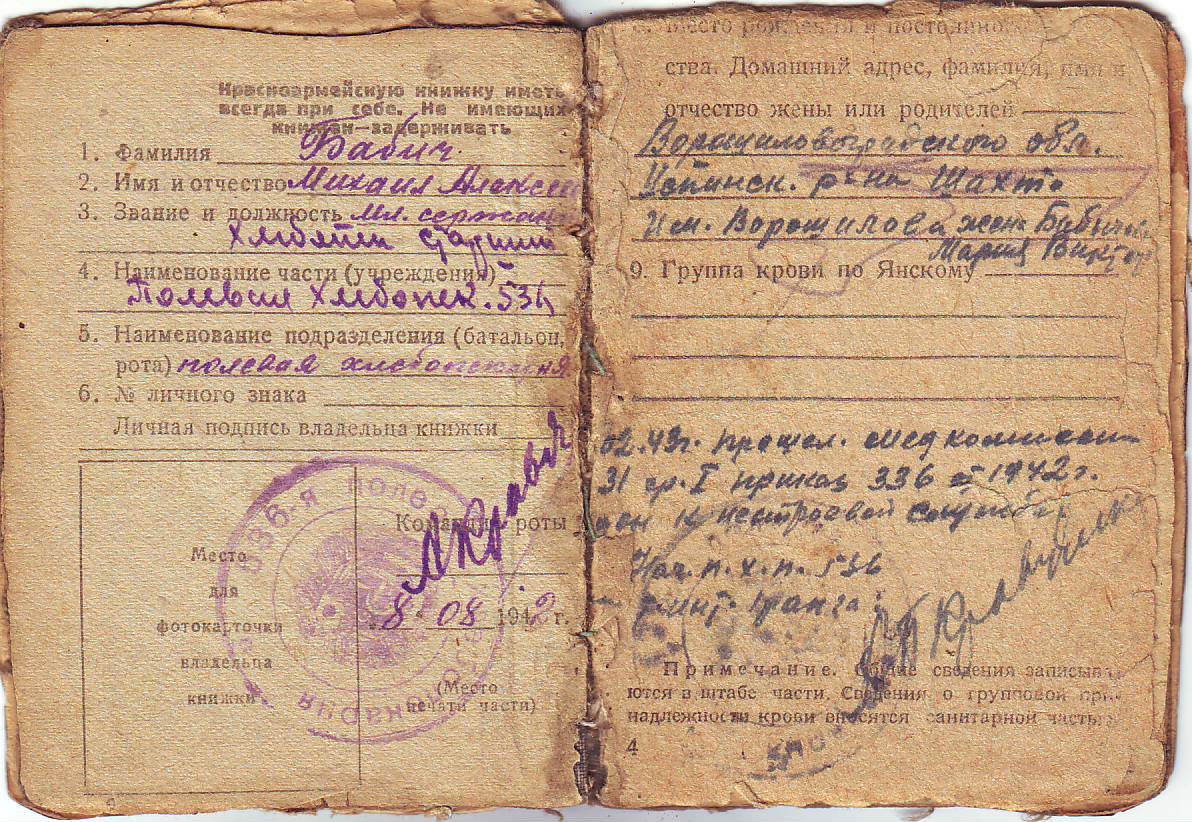 Красноармейскую книжку иметь
всегда при себе. Не имеющих
книжек—задерживать
1. Фамилия Бабич
2. Имя и отчество Михаил Алексе
3. Звание и должность Мл. сержант
Хлебопек старший
4. Наименование части (учреждения)
Полевая Хлебопек. 536
5. Наименование подразделения (батальон,
рота) полевая хлебопекарня
6. № личного знака
Личная подпись владельца книжки
Место
для
фотокарточки
владельца
книжки
536-я полев
карня
Командир роты
8 08 1942 г.
(Место
печати части)
Место рождения и постоянного
ства. Домашний адрес, фамилия, имя и
отчество жены или родителей
Ворошиловоградского обл.
Успинск. р-на Шахта
Им. Ворошилова жена Бабич
Мария Виктор
9. Группа крови по Янскому
02.43г. прошел. мед комиссию
31 гр. I приказ 336 1942г.
к нестроевой службе
Нач. п. х. п. 536
Примечание. Общие сведения записыва-
ются в штабе части. Сведения о групповой при-
надлежности крови вносятся санитарной частью
4